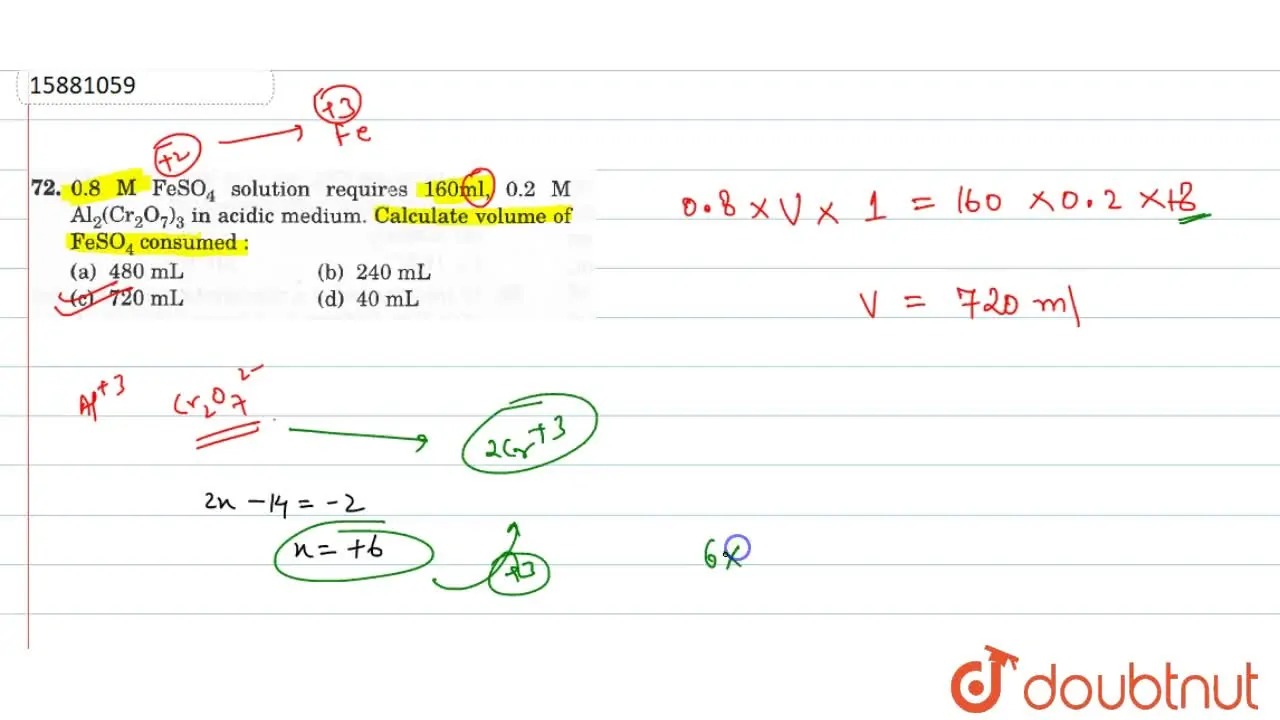 15881059
+3
+2 → Fe
72. 0.8 M FeSO₄ solution requires 160ml, 0.2 M
Al₂(Cr₂O₇)₃ in acidic medium. Calculate volume of
FeSO₄ consumed :
(a) 480 mL (b) 240 mL
(c) 720 mL (d) 40 mL
0.8 × V × 1 = 160 × 0.2 ×
V = 720 ml
Al⁺³ Cr₂O₇²⁻ → 2Cr⁺³
2x - 14 = -2
x = +6
+3
6 ×
doubtnut